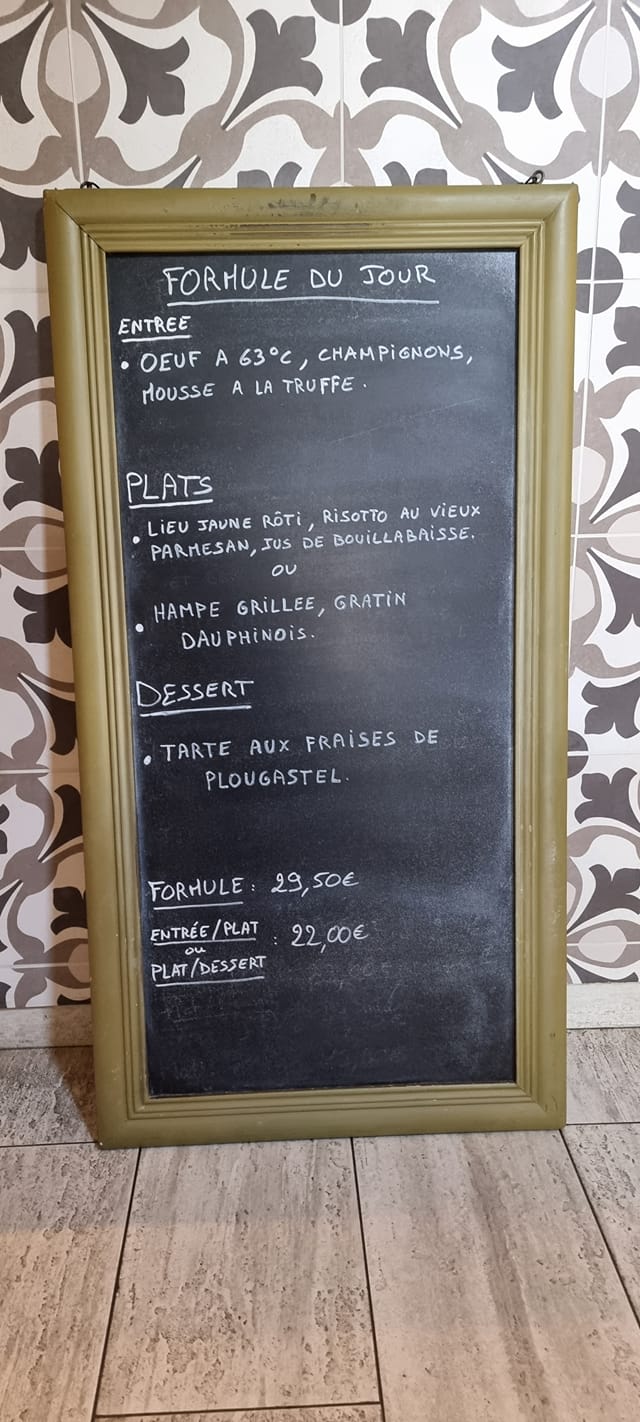 FORMULE DU JOUR
ENTREE
• OEUF A 63°C, CHAMPIGNONS,
MOUSSE A LA TRUFFE.
PLATS
• LIEU JAUNE RÔTI, RISOTTO AU VIEUX
PARMESAN, JUS DE BOUILLABAISSE.
OU
• HAMPE GRILLEE, GRATIN
DAUPHINOIS.
DESSERT
• TARTE AUX FRAISES DE
PLOUGASTEL.
FORMULE : 29,50€
ENTRÉE/PLAT : 22,00€
ou
PLAT/DESSERT